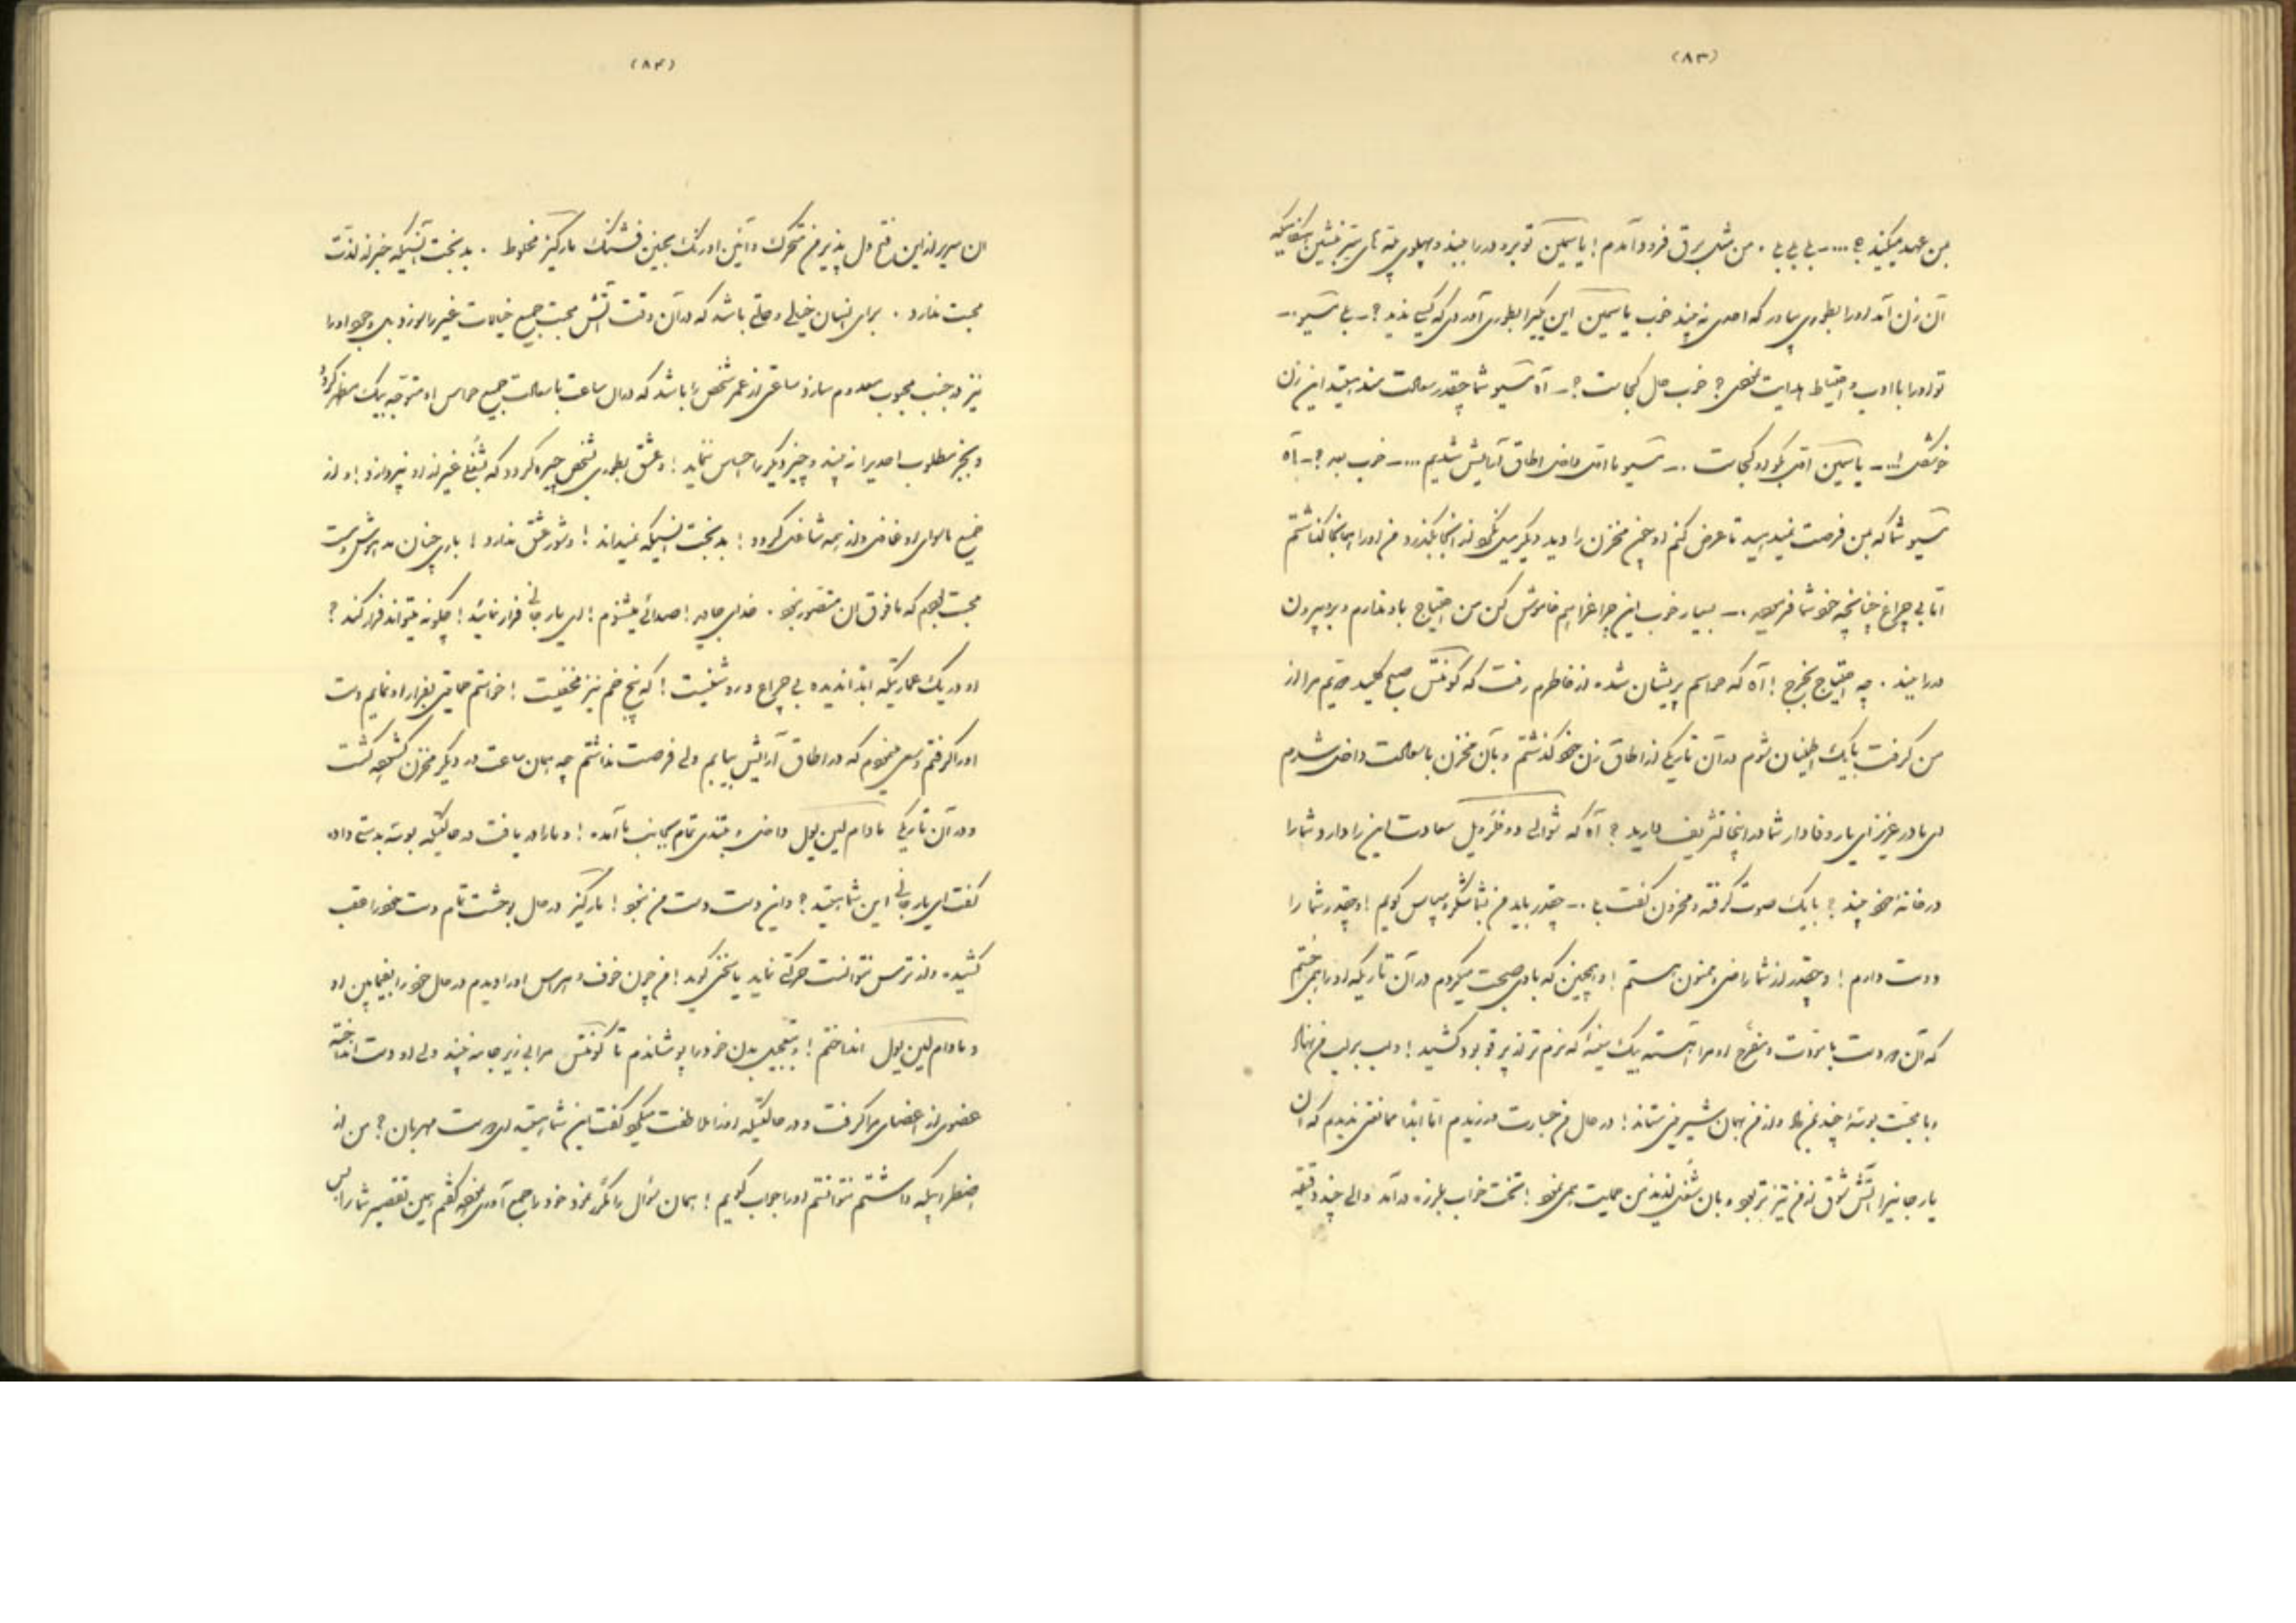 (۸۳)
بمن عهد میکنید ؟ ... ـ بلی بلی . من مثل برق فرود آمدم ! یاسمین تو برو در را ببند و پهلوی پله های تیز بنشین
آن زن آمد او را بطوری بیاور که احدی نه بیند خوب یاسمین این بطوری آوردی که کسی ندید ؟ ـ بلی مسیو ـ
تو او را با ادب و احتیاط هدایت نمودی ؟ خوب حال کجاست ؟ ـ آه مسیو شما چقدر سعادتمند هستید این زن
خوشگل ! .. ـ یاسمین احمق بگو او کجاست . ـ مسیو با احمق داخل اطاق آرایش شدیم ... ـ خوب بعد ؟ ـ آه
مسیو شما که بمن فرصت نمیدهید تا عرض کنم او چون مخزن را دید دیگر میل نکرد از آنجا بگذرد من او را همانجا گذاشتم
اما بی چراغ چنانچه خود شما فرمودید . ـ بسیار خوب این چراغ را هم خاموش کن من احتیاج باو ندارم و برو بیرون
در را ببند . چه احتیاج بخرج ! آه که حواسم پریشان شده از خاطرم رفت که کونتس صبح کلید مرا از
من گرفت با یک اطمینان تمام در آن تاریکی از اطاق زن خود گذشتم و بآن مخزن با سعادت داخل شدم
ای مادر عزیز ای یار وفادار شما در اینجا تشریف دارید ؟ آه که شوالیه دو فزویل سعادت این را دارد شما را
در خانه خود بیند ؟ با یک صوت گرفته و محزون گفت بلی . ـ چقدر باید من بشما شکر و سپاس گویم ! و چقدر شما را
دوست دارم ! و چقدر از شما راضی و ممنون هستم ! و همچنین که با وی صحبت میکردم در آن تاریکی او را همی جستم
که آن دو دست با مروت و مفرح او مرا آهسته بیک سینه که نرم تر از پر قو بود کشید ! و لب بر لب من نهاد
و با محبت بوسه چند بمن داد و از من همان شیرینی ستاند ! در حال من جسارت ورزیدم اما ابدا ممانعتی ندیدم که آن
یار جانی را آتش شوق از من تیزتر بود و بآن شغل لذیذ من حمیت همی نمود ! تخت خواب بلرزه در آمد و الی چند دقیقه
(۸۴)
آن سریر از این فتح دل پذیر من متحرک و آئین اورنگ بچنین قشنگ مارکیز مخلوط . بدبخت آنکه خبر از لذت
محبت ندارد . برای انسان خیلی وقتی باشد که در آن وقت آتش محبت جمیع خیالات غیر را بسوزد و وجود او را
نیز در جنب محبوب معدوم سازد ساعتی از عمر شخص را باشد که در آن ساعت با سعادت جمیع حواس او متوجه بیک منظر گردد
و بجز مطلوب احدیرا نه بیند و چیز دیگر را احساس ننماید ! و عشق بطوری بشخص چیره گردد که بشغلی غیر از او نپردازد ! و از
جمیع ماسوای او غافل و از همه شاغل گردد ! بدبخت آنکه نمیداند ! و شور عشق ندارد ! باری چنان مدهوش و مست
محبت بودم که ما فوق آن متصور نبود . خدای جاوید ! صدائی میشنوم ! ای یار جانی فرار نمائید ! چگونه میتواند فرار کند ؟
او در یک عمارتیکه ابدا ندیده بی چراغ و روشنیست ! که پنج خم نیز مخفیست ! خواستم حمایتی بفرار او نمایم دست
او را گرفتم و سعی مینمودم که در اطاق آرایش بیایم ولی فرصت نداشتم چه همان ساعت در دیگر مخزن گشوده گشت
و در آن تاریکی مادام لین یول داخل و بتندی تمام بجانب ما آمده ! و ما را دریافت در حالتیکه بوسه بدستی داده
گفت ای یار جانی این شما هستید ؟ و این دست دست من نبود ! مارکیز در حال بوحشت تمام دست خود را عقب
کشیده و از ترس نتوانست حرکتی نماید یا سخنی گوید ! من چون خوف و هراس او را دیدم در حال خود را فیمابین او
و مادام لین یول انداختم ! و بتعجیل بدن خود را پوشاندم تا کونتس مرا بی زیر جامه نبیند ولی او دست انداخته
عضوی از اعضای مرا گرفت و در حالتیکه او را ملاطفت میکرد گفت این شما هستید ای دوست مهربان ؟ من از
اضطرابیکه داشتم نتوانستم او را جواب گویم ! همان سؤال را مکرر نمود خود را جمع آوری نموده گفتم همین تقصیر شما را بس